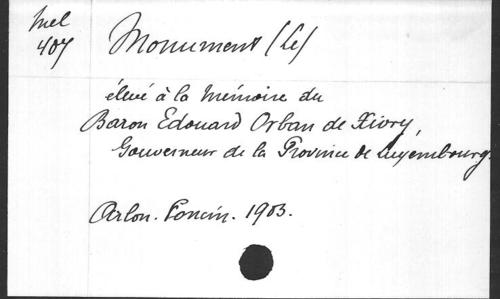 Mel
407
Monument (Le)
élevé à la Mémoire du
Baron Edouard Orban de Xivry,
Gouverneur de la Province de Luxembourg.
Arlon. Poncin. 1903.